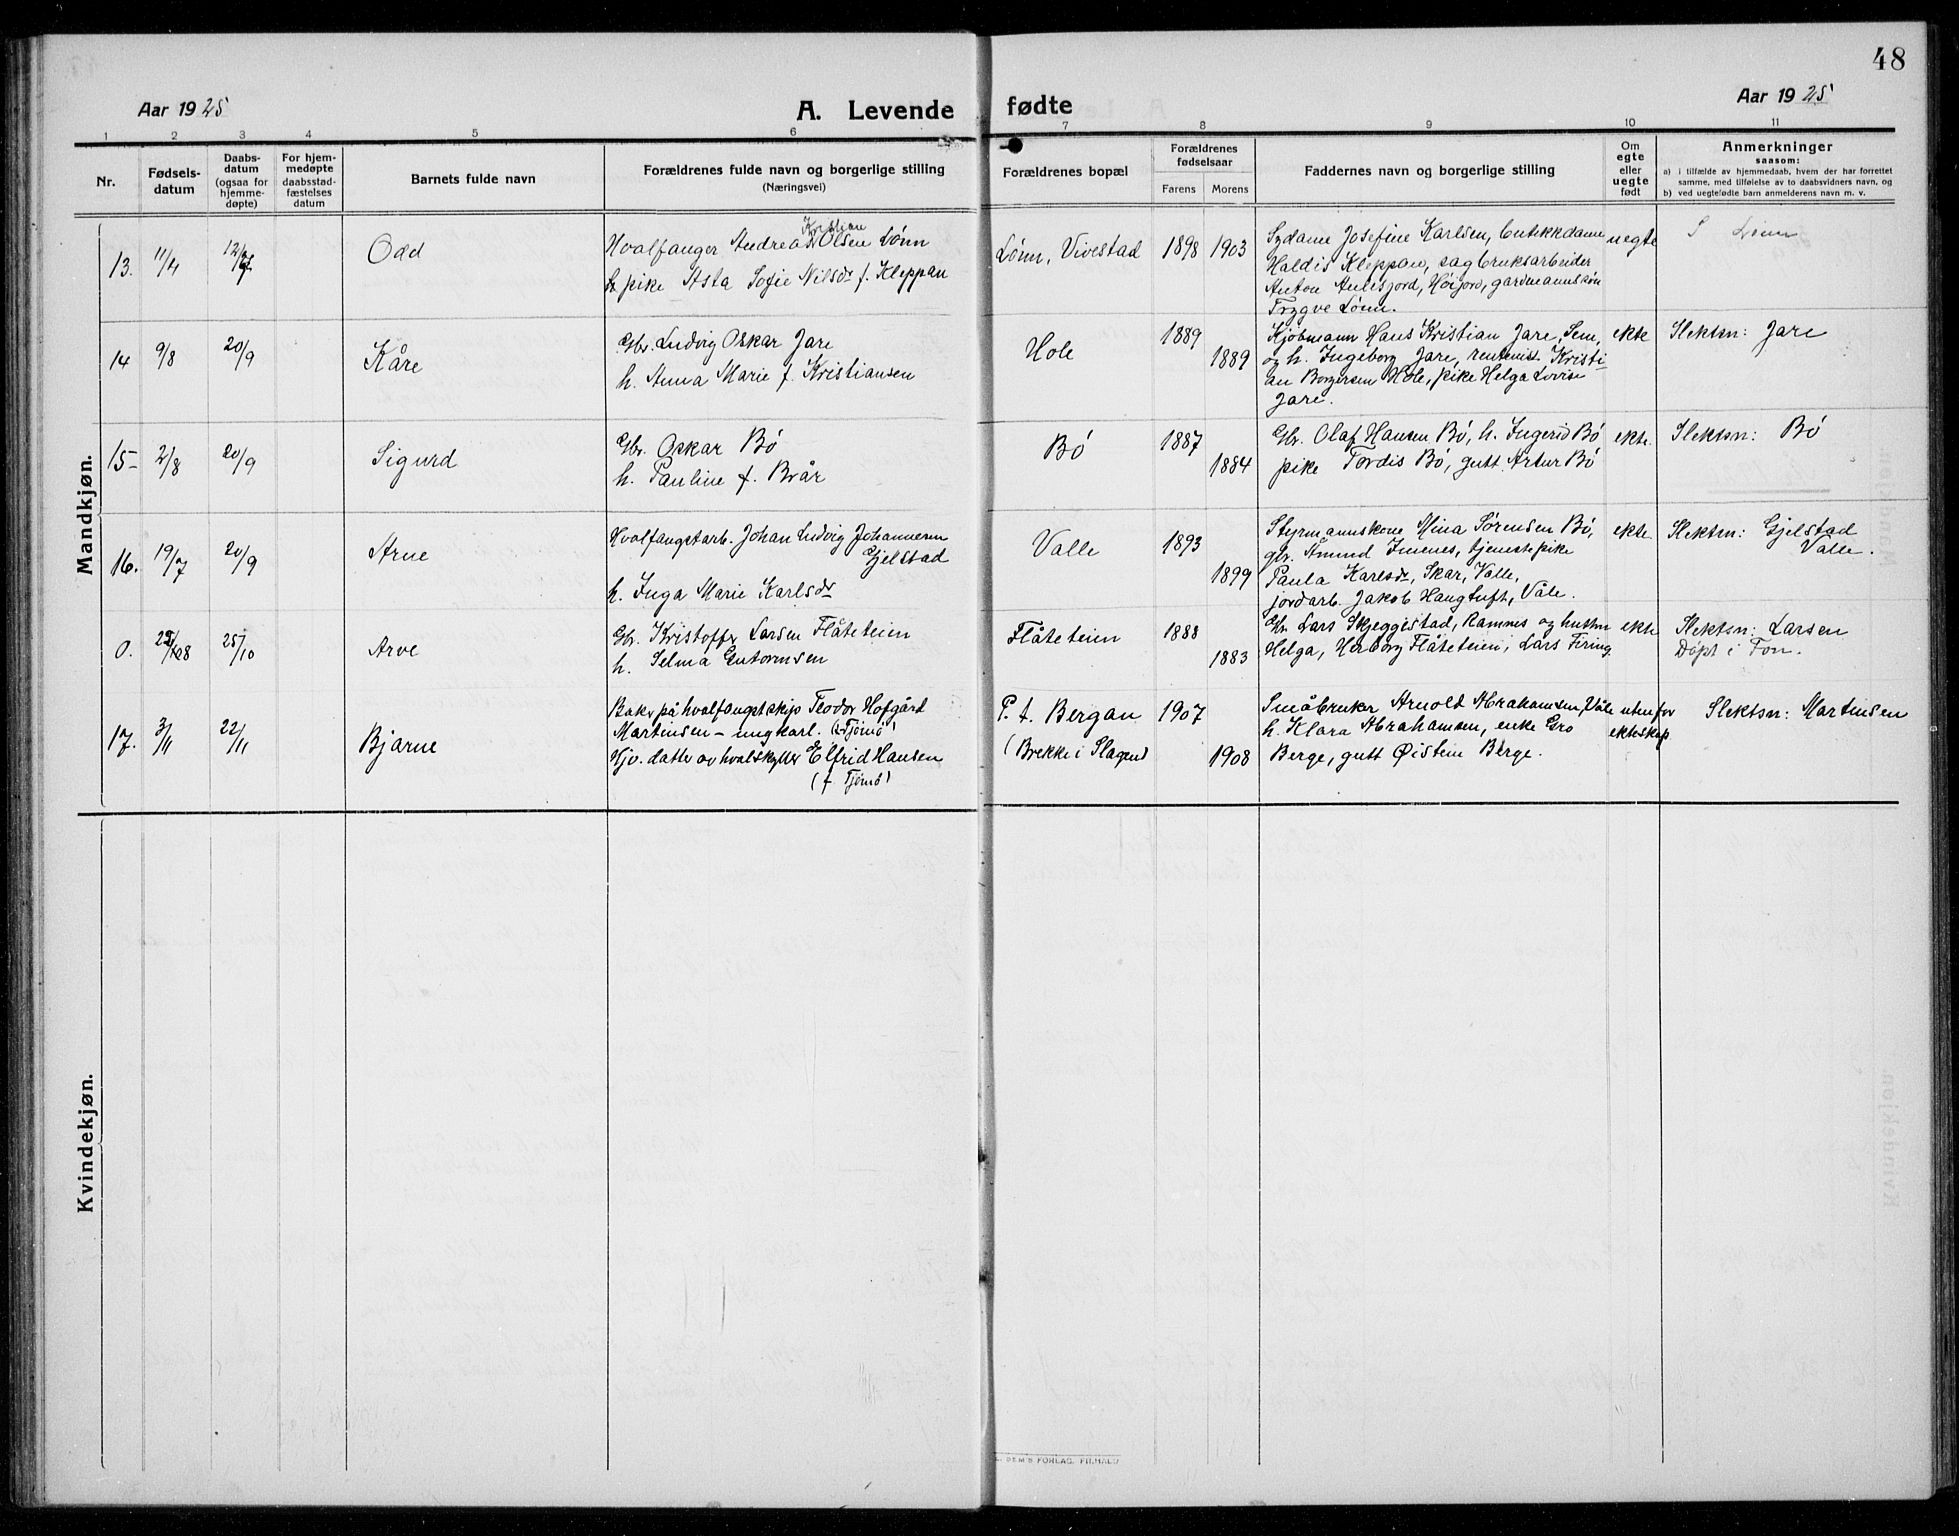 48
Aar 1925
A. Levende fødte
Aar 1925
1 2 3 4 5 6 7 8 9 10 11
Nr.
Fødsels-
datum
Daabs-
datum
(ogsaa for
hjemme-
døpte)
For hjem-
medøpte
daabsstad-
fæstelses
datum
Barnets fulde navn
Forældrenes fulde navn og borgerlige stilling
(Næringsvei)
Forældrenes bopæl
Forældrenes
fødselsaar
Farens Morens
Faddernes navn og borgerlige stilling
Om
egte
eller
uegte
født
Anmerkninger
saasom:
a) i tilfælde av hjemmedaab, hvem der har forrettet
samme, med tilføielse av to daabsvidners navn, og
b) ved uegtefødte barn anmelderens navn m. v.
Mandkjøn.
13. 11/4 12/7 Odd
Kristian
Hvalfanger Andreas Olsen Lønn
pike Asta Sofie Nilsdr f. Kleppan
Lønn, Vivestad 1898 1903
Sydame Josefine Karlsen, butikkdame
Haldis Kleppan, sagbruksarbeider
Anton Aulesjord, Høijord, gardmannskøn
Trygve Lønn.
uegte
S Lønn
14 9/8 20/9 Kåre
Gbr. Ludvig Oskar Jare
h. Anna Marie f. Kristiansen
Hole 1889
1889
Kjøbmann Hans Kristian Jare, Sem,
og h. Ingeborg Jare, rentenist Kristi-
an Borgersen Hole, pike Helga Lovise
Jare.
ekte
Slektsn: Jare
15 2/8 20/9 Sigurd
Gbr. Oskar Bø
h. Pauline f. Brår
Bø 1887
1884
Gbr. Olaf Hansen Bø, h. Ingerid Bø
pike Tordis Bø, gutt Artur Bø
ekte.
Slektsn: Bø
16. 19/7 20/9 Arne
Hvalfangstarb. Johan Ludvig Johannesen
Gjelstad
h. Inga Marie Karlsdr
Valle 1893
1899
Styrmannskone Mina Sørensen Bø,
gbr. Åmund Imenes, tjenestepike
Paula Karlsdr, Skar, Valle,
jordarb. Jakob Haugtuft, Våle.
ekte
Slektsn: Gjelstad
Valle.
0. 25/10 Arve
Gbr. Kristoffer Larsen Flåteteien
h. Selma Guttormsen
Flåteteien 1888
1883
Gbr. Lars Skjeggestad, Ramnes og hustru
Helga, Herborg Flåteteien, Lars Firing.
ekte
Slektsn: Larsen
Døpt i Fon.
17. 3/11 22/11 Bjarne
Baker på hvalfangstskip Teodor Hofgård
Martinsen – ungkarl. (Tjømø)
Hjv. datter av hvalskytter Elfrid Hansen
(f Tjømø)
P. t. Bergan
(Brekke i Slagen)
1907
1908
Småbruker Arnold Abrahamsen, Våle
h. Klara Abrahamsen, enke Gro
Berge, gutt Øistein Berge.
utenfor
ekteskap
Slektsn: Martinsen
Kvindekjøn.
DEM'S FORLAG.